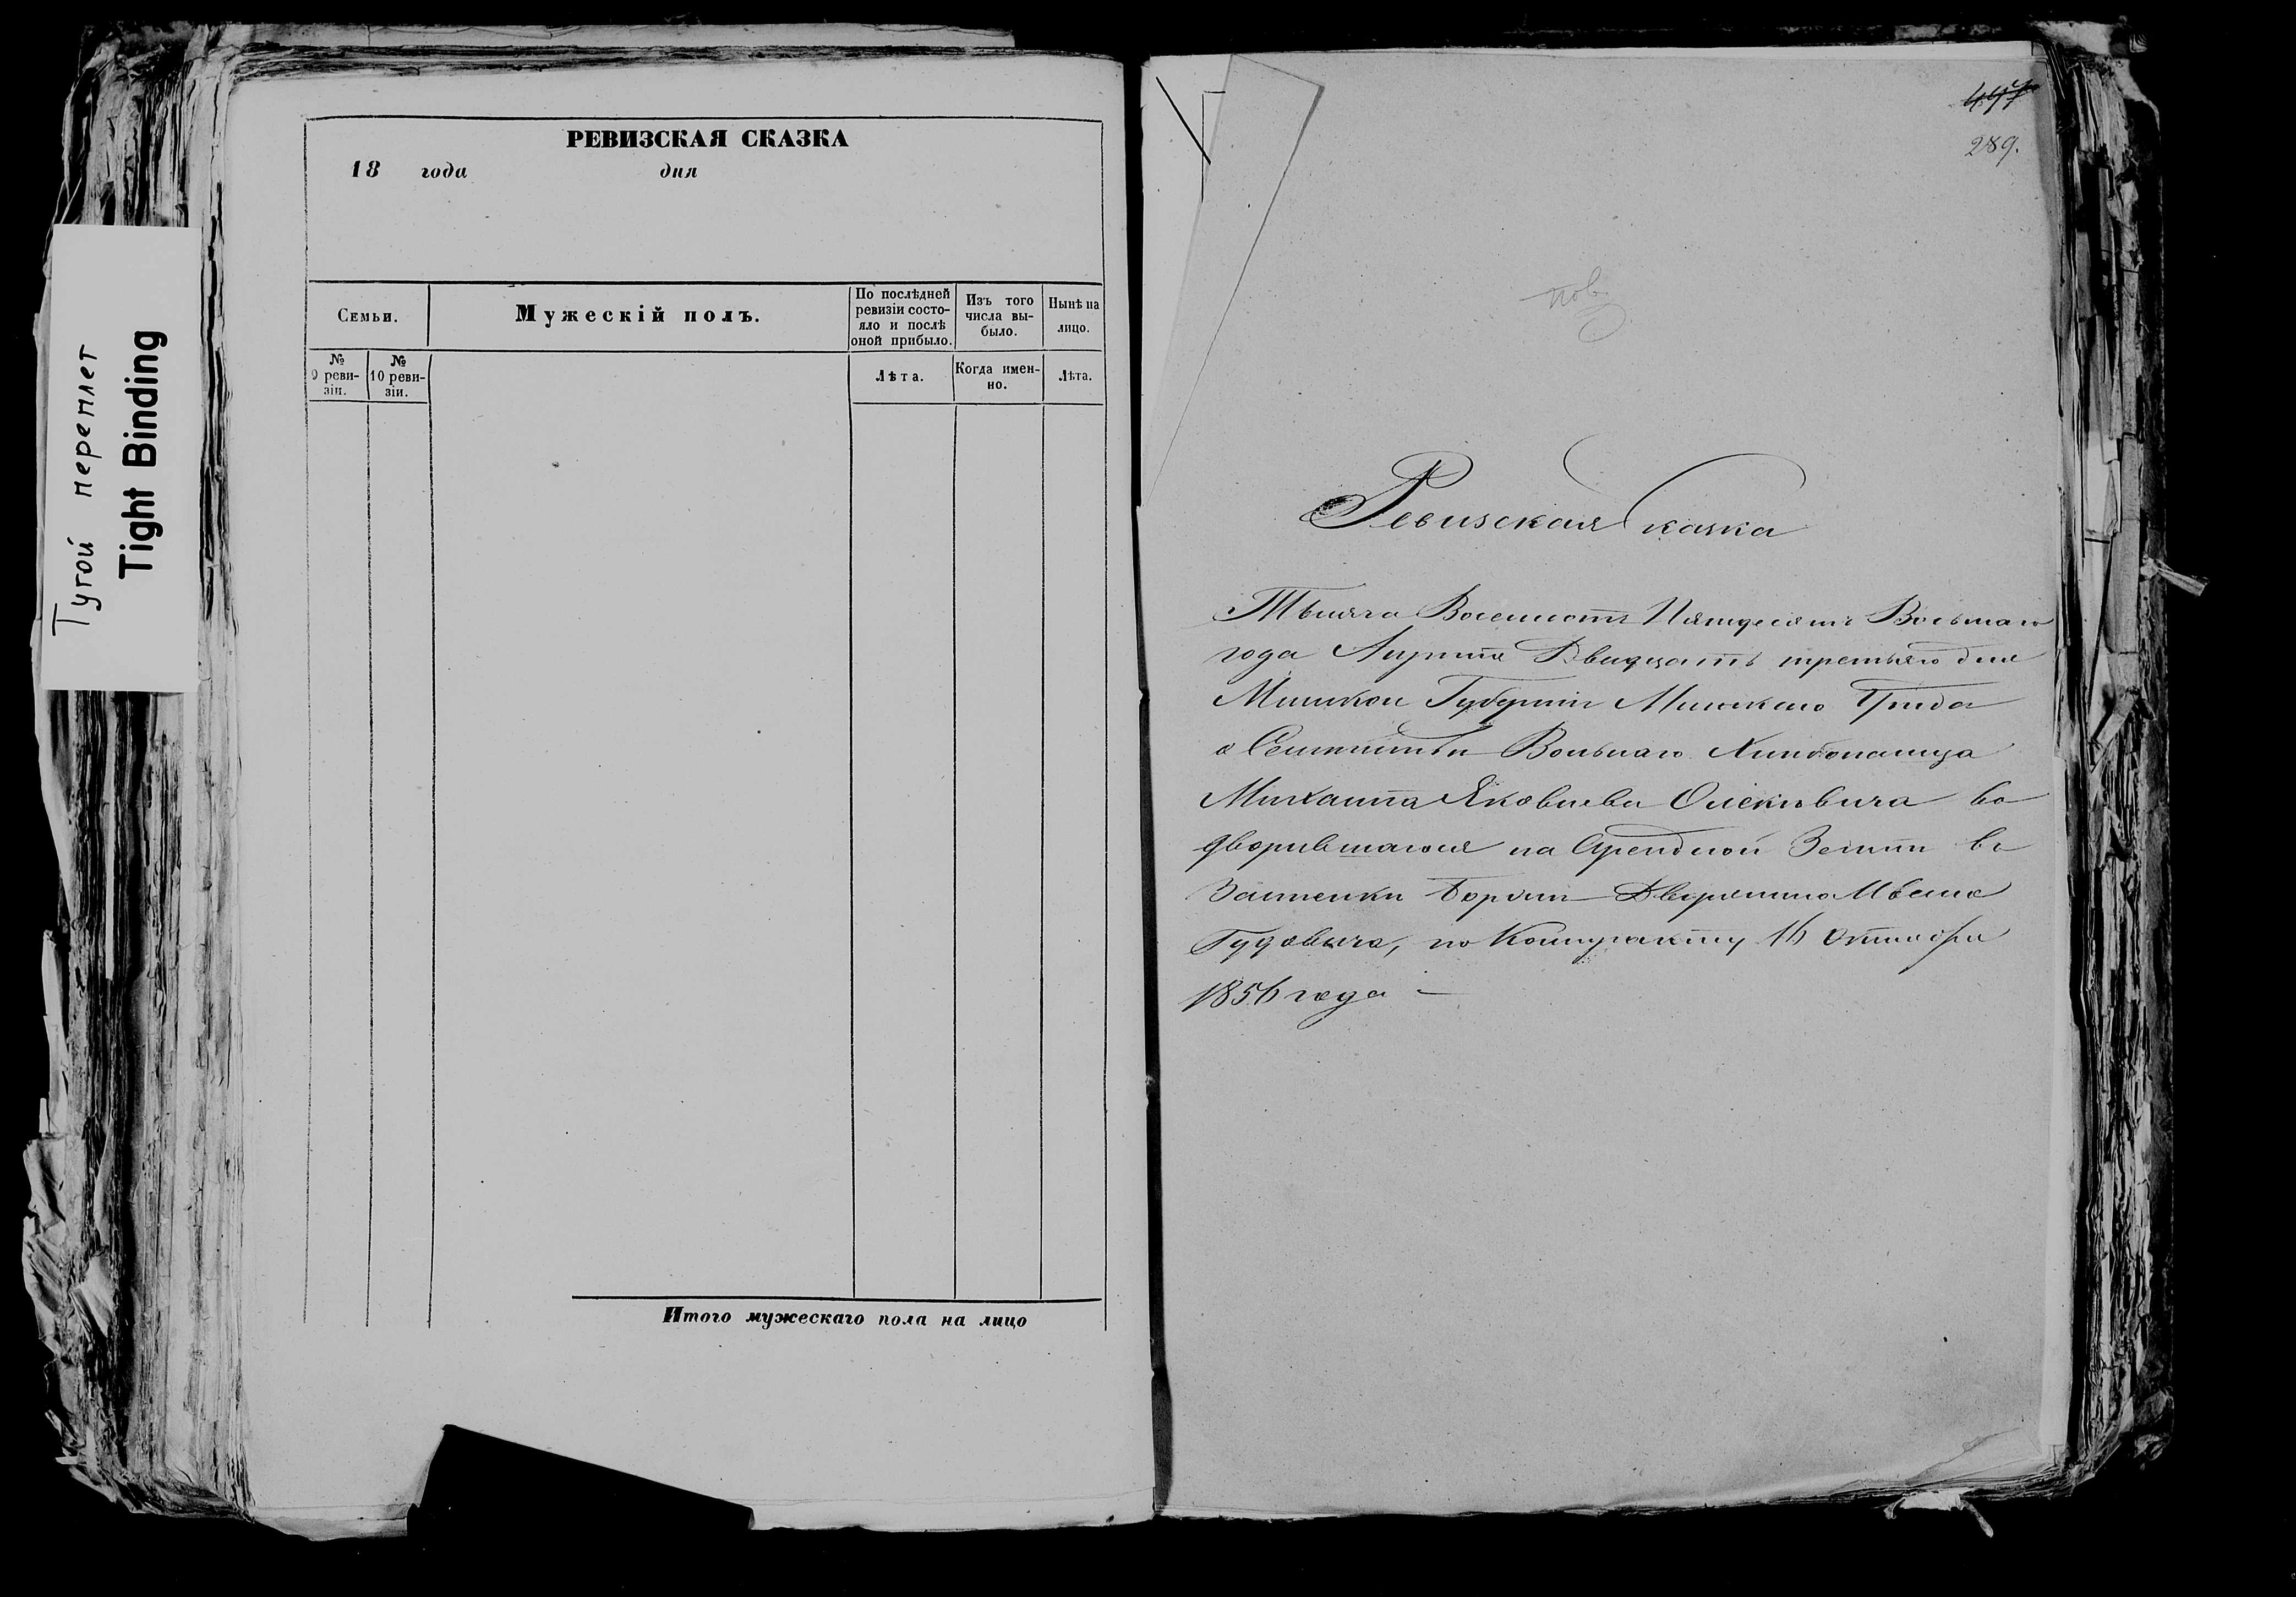 Тугой переплет
Tight Binding
РЕВИЗСКАЯ СКАЗКА
18 года дня
Семьи.
Мужескій полъ.
По послѣдней ревизіи состояло и послѣ оной прибыло.
Изъ того числа выбыло.
Нынѣ на лицо.
№ 9 ревизіи.
№ 10 ревизіи.
Лѣта.
Когда именно.
Лѣта.
Итого мужескаго пола на лицо
497
289.
пов.
Ревизская Сказка
Тысяча Восемсотъ Пятдесятъ Восьмаго
года Апрѣля Двадцать третьяго дня
Минской Губерніи Минскаго Уѣзда
о Семействѣ Вольнаго Хлѣбопашца
Михаила Яковлева во
дворившагося на Арендной Землѣ въ
Застенки Дворянина Ивана
Гудовича, по Контракту 16 Октября
1856 года —